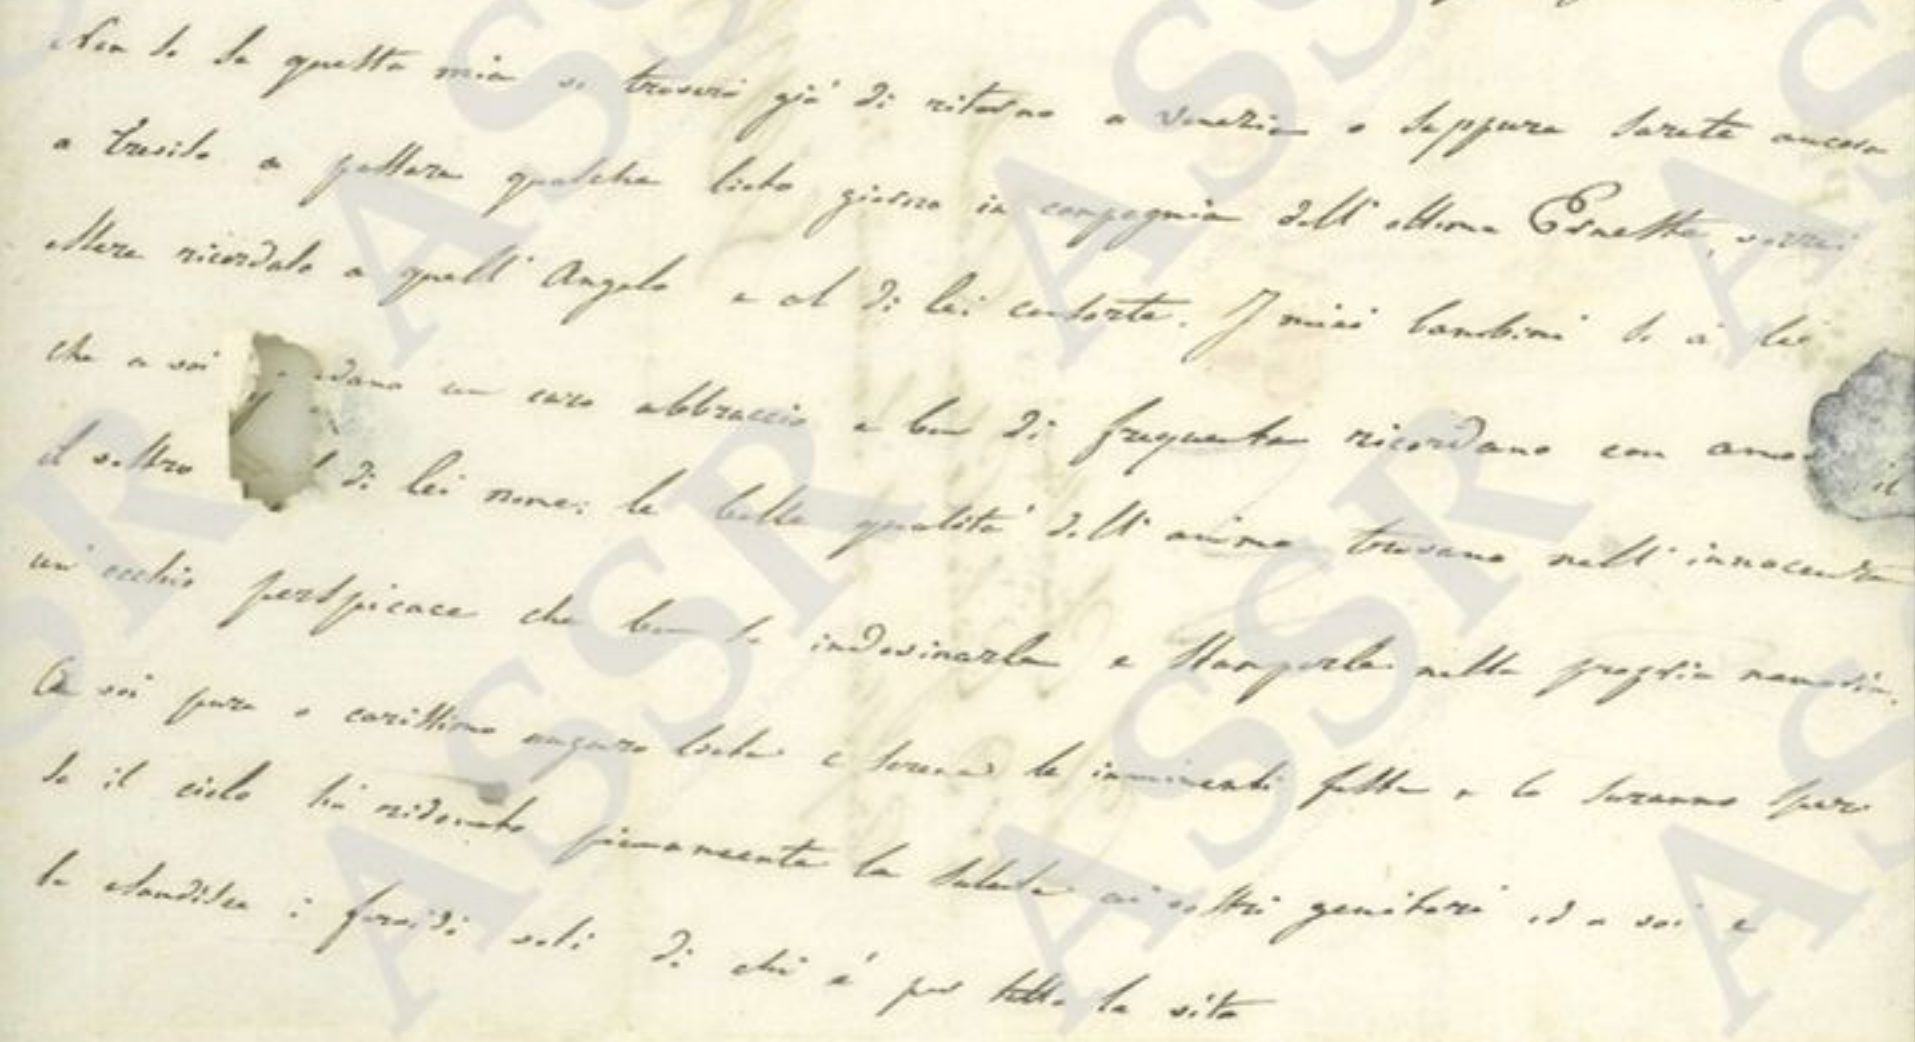 Non so se questa mia vi troverà già di ritorno a Venezia o seppure sarete ancora
a Treviso a passare qualche lieto giorno in compagnia dell' ottima Ernesta, vorrei
essere ricordato a quell' Angelo e al di lei consorte. I miei bambini sì a lei
che a voi un caro abbraccio e ben di frequente ricordano con
il vostro di lei nome; le belle qualità dell' animo trovano nell' innocenza
un' occhio perspicace che ben sa indovinarle e stamparle nella propria memoria.
A voi pure o carissimo auguro liete e serene le imminenti feste e lo saranno
se il cielo hà ridonato pienamente la salute ai vostri genitori ed a voi e
se esaudisce i voti di chi è per tutta la vita
ASSR